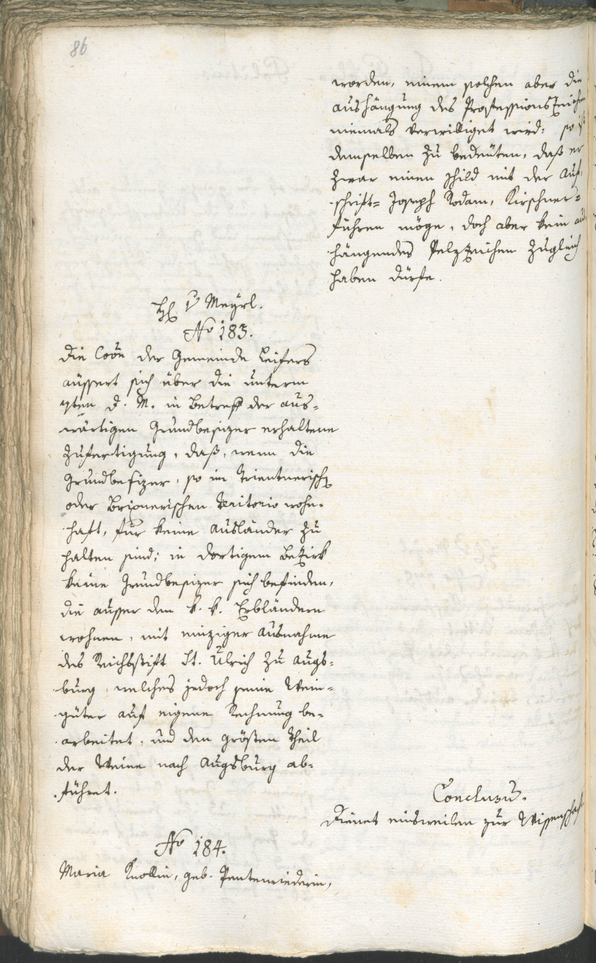 86
worden, einem solchen aber die
aushängung des Professions Zeichen
niemals verwilliget wird; so ist
demselben zu bedeuten, daß er
zwar einen Schild mit der Auf¬
schrift= Joseph Rodam, Kirschner=
führen möge, doch aber kein aus
hängendes Pelzzeichen zugleich
haben dürfe.
H. v Meÿrl.
No 183.
Die Coon der Gemeinde Leifers
äussert sich über die unterm
7ten d. M. in Betreff der aus=
wärtigen Grundbesizer erhaltene
Zufertigung, daß, wenn die
Grundbesizer, so im Trientnerisch
oder Brixnerischen Territorio wohn¬
haft, für keine Ausländer zu
halten sind; in dortigem Bezirk
keine Grundbesizer sich befinden,
die ausser den k. k. Erbländern
wohnen, mit einziger Ausnahme
des Reichsstift St. Ulrich zu Augs=
burg, welches jedoch seine Wein=
güter auf eigene Rechnung be=
arbeitet, und den grösten Theil
der Weine nach Augsburg ab=
führet.
Concluzũ.
Dienet einsweilen zur Wissenschaft
No 184.
Maria Knollin, geb. Pentenriederin,